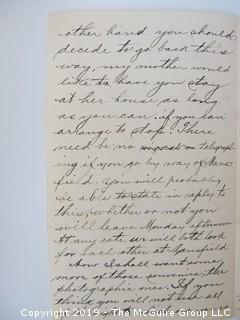 other hand you should
decide to go back this
way, my mother would
like to have you stay
at her house as long
as you can, if you can
arrange to stop. There
need be no telegraph
ing if you go by way of Mans
field. You will probably
be able to state in reply to
this, whether or not you
will leave Monday afternoon
At any rate we will both look
for each other at Mansfield
Now I shall want some
more of those souvenirs, the
photographic ones. If you
think you will not use all
Copyright 2019 - The McGuire Group LLC